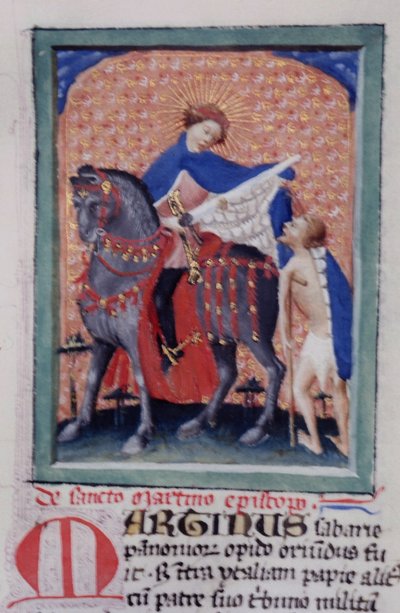 De sancto Martino episcopo.
MARTINUS sabarie
panonioꝝ opido oriūdus fu
it. intra ytaliam papie
cū patre suo t̾buno militū